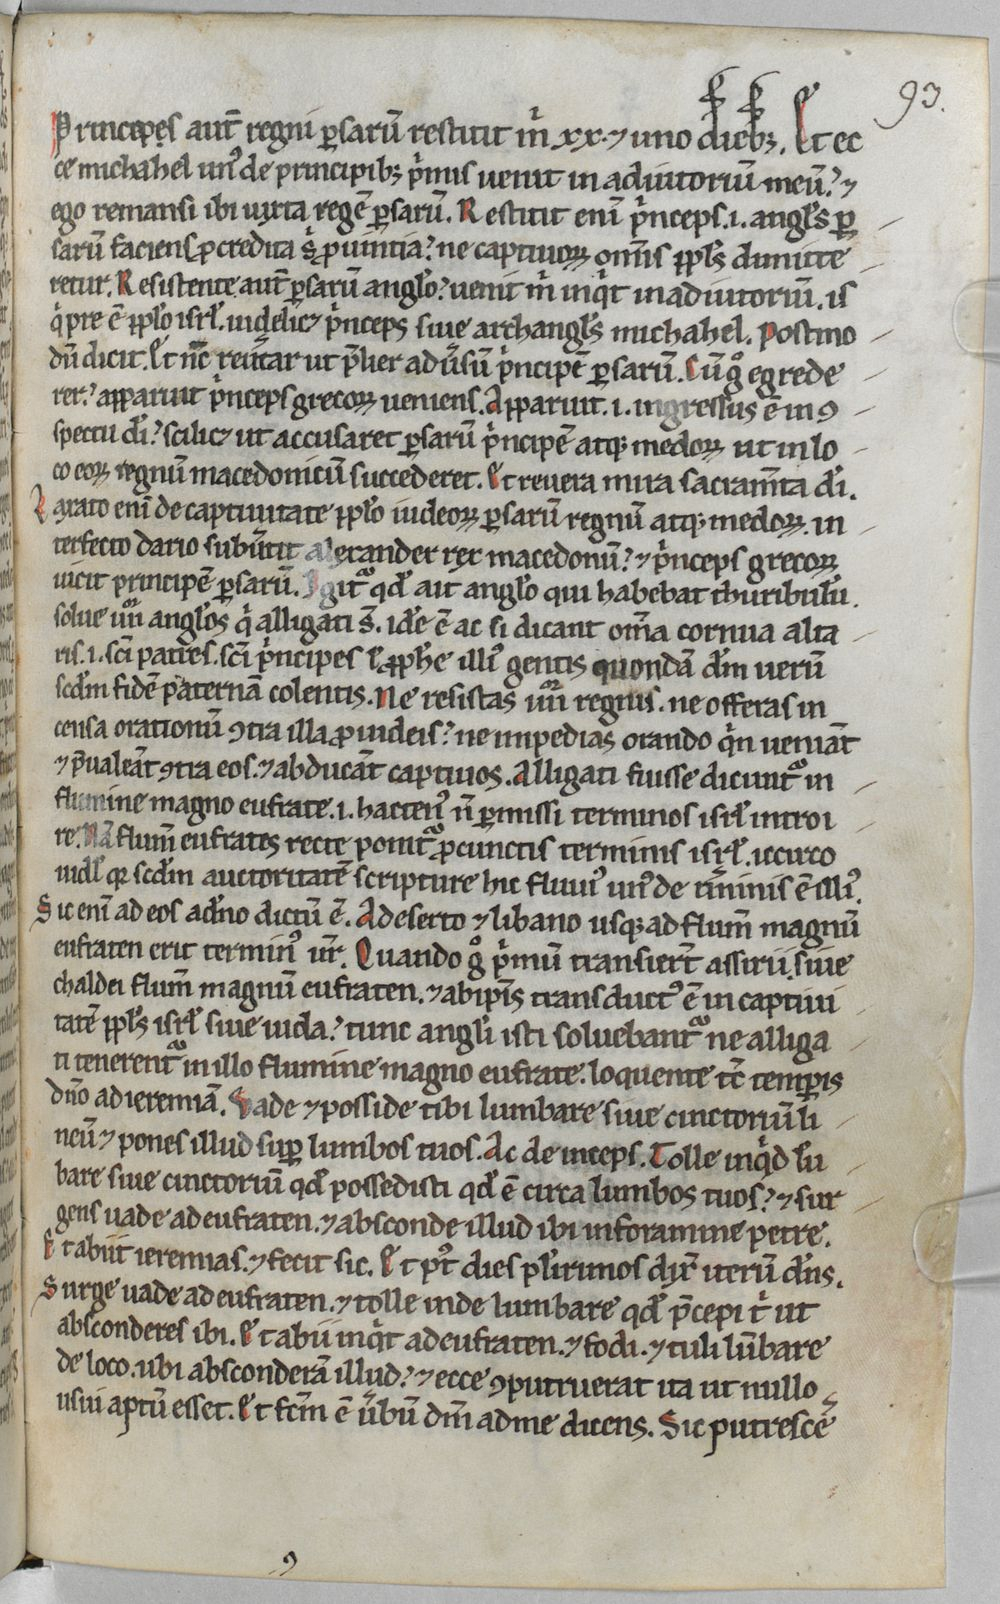 93.
Principes aut̄ regni p̲sarū restitit m̍ xx. ⁊ uno dieb;. Et ec
ce michahel un᾽ de principib; p̍mis uenit in adiutoriū meū? ⁊
ego remansi ibi iuxta regē p̲sarū. Restitit eni p̍nceps .i. angl̄s p̲
sarū faciens ꝓ credita s̍ ꝓuintia? ne captiuoꝝ om̄is ppl̄s dimitte
retur. Resistente aut̄ p̲sarū angl̄o? uenit m̍ inq̍t in adiutoriū. is
q̍ p̄e ē ppl̄o isrl̄. uidelic; p̍nceps siue archangl̄s michahel. Postmo
dū dicit. Et nc̄ reūtar ut p̄lier aduersū p̍ncipē p̲sarū. Cū g̊ egrede
rer? apparuit p̍nceps grecoꝝ ueniens. Apparuit .i. ingressus ē in ꝯ
spectu dī? scilic; ut accusaret p̲sarū p̍ncipē atq; medoꝝ ut in lo
co eoꝝ regnū macedonicū succederet. Et reuera mira sacram̄ta dī.
Laxato eni de captiuitate ppl̄o iudeoꝝ p̲sarū regnū atq; medoꝝ. in
terfecto dario subūtit alexander rex macedonū? ⁊ p̍nceps grecoꝝ
uicit principē p̲sarū. Igit᷑ qd̄ ait angl̄o qui habebat thuribulū.
solue iiii angl̄os q̍ alligati s̄. id̄e ē ac si dicant om̄a cornua alta
ris .i. sc̄i patres. sc̄i p̍ncipes ł ꝓph̄e illi᾽ gentis quondā dm̄ uerū
scdm̄ fidē paternā colentis. Ne resistas iiii regnis. ne offeras in
censa orationū ꝯtra illa ꝓ iudeis? ne impedias orando q̍n ueniāt
⁊ p̄ualeāt ꝯtra eos. ⁊ abducāt captiuos. Alligati fuisse dicunt᷑ in
flumine magno eufrate .i. hacten᾽ n̄ p̲missi terminos isrl̄ introi
re. Nā flum̄ eufrates recte ponit᷑ ꝓ cunctis terminis isrl̄. iccirco
uidl̄ q; scdm̄ auctoritatē scripture hic fluui᾽ un᾽ de t̄minis ē illi᾽.
Sic eni ad eos a dn̄o dictū ē. A deserto ⁊ libano usq; ad flum̄ magnū
eufraten erit termin᾽ ur̄. Quando g̊ p̍mū transier̄t assirii. siue
chaldei flum̄ magnū eufraten. ⁊ ab ip̄is transduct᾽ ē in captiui
tatē ppl̄s isrl̄ siue iuda? tunc angl̄i isti soluebant᷑ ne alliga
ti tenerent᷑ in illo flumine magno eufrate. loquente tc̄ temp̲is
dn̄o ad ieremiā. Uade ⁊ posside tibi lumbare siue cinctoriū li
neū ⁊ pones illud sup̲ lumbos tuos. Ac deinceps. Tolle inq̍d lū
bare siue cinctoriū qd̄ possedisti qd̄ ē circa lumbos tuos? ⁊ sur
gens uade ad eufraten. ⁊ absconde illud ibi in foramine petre.
Et abiit ieremias. ⁊ fecit sic. Et p᾽t dies pl̄rimos dix̄ iterū dn̄s.
Surge uade ad eufraten. ⁊ tolle inde lumbare qd̄ p̄cepi t̍ ut
absconderes ibi. Et abii inq̍t ad eufraten. ⁊ fodi. ⁊ tuli lūbare
de loco. ubi absconderā illud? ⁊ ecce ꝯputruerat ita ut nullo
usui aptū esset. Et fcm̄ ē ūbū dm̄ ad me dicens. Sic putrescē